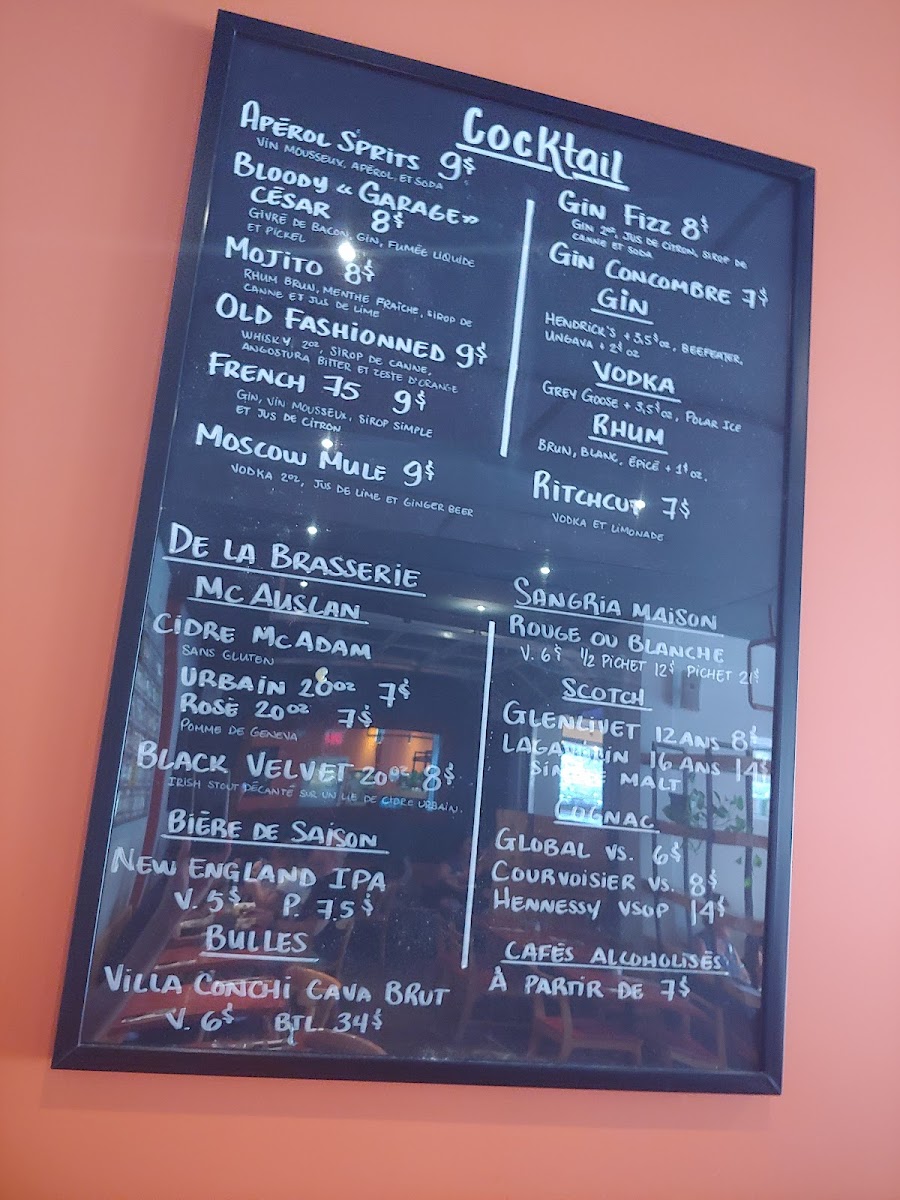 Cocktail
Apérol Sprits 9$
Vin mousseux, Apérol, et soda
Bloody « Garage »
César 8$
Givre de bacon, gin, fumée liquide
et pickel
Mojito 8$
Rhum brun, menthe fraîche, sirop de
canne et jus de lime
Old Fashionned 9$
Whisky 2oz, sirop de canne,
Angostura bitter et zeste d'orange
French 75 9$
Gin, vin mousseux, sirop simple
et jus de citron
Moscow Mule 9$
Vodka 2oz, jus de lime et ginger beer
Gin Fizz 8$
Gin 2oz, jus de citron, sirop de
canne et soda
Gin Concombre 7$
Gin
Hendrick's + 3,5$ oz, Beefeater,
Ungava + 2$ oz
Vodka
Grey Goose + 3,5$ oz, Polar Ice
Rhum
Brun, blanc, épicé + 1$ oz.
Ritchcut 7$
Vodka et limonade
De la Brasserie
Mc Auslan
Cidre McAdam
Sans gluten
Urbain 20oz 7$
Rosé 20oz 7$
Pomme de Geneva
Black Velvet 20oz 8$
Irish stout décanté sur un lie de cidre urbain.
Bière de Saison
New England IPA
V. 5$ P. 7.5$
Bulles
Villa Conchi Cava Brut
V. 6$ Btl. 34$
Sangria Maison
Rouge ou Blanche
V. 6$ 1/2 Pichet 12$ Pichet 21$
Scotch
Glenlivet 12 ans 8$
Lagavulin 16 ans 14$
Single Malt
Cognac
Global vs. 6$
Courvoisier vs. 8$
Hennessy vsop 14$
Cafés alcoolisés
À partir de 7$